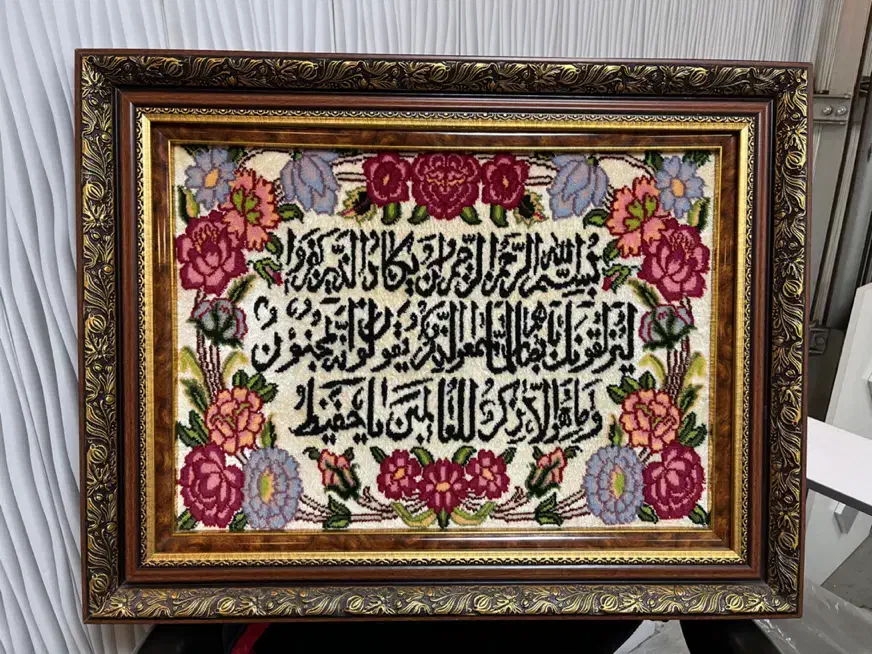 بسم الله الرحمن الرحیم وان یکاد الذین کفروا
لیزلقونک بابصارهم لما سمعوا الذکر و یقولون انه لمجنون
و ما هو الا ذکر للعالمین یا حفیظ